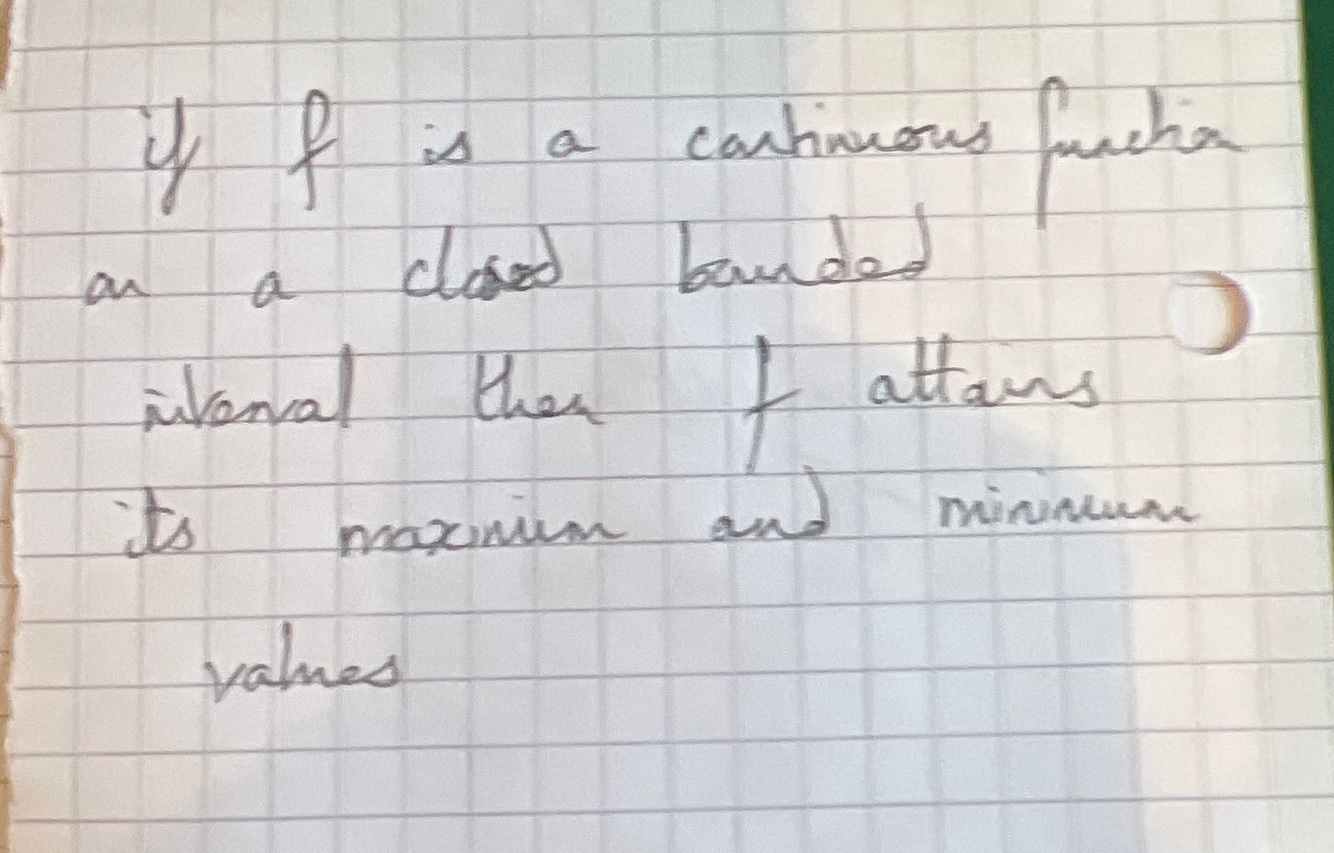 if f is a continuous function
on a closed bounded
interval then f attains
its maximum and minimum
values